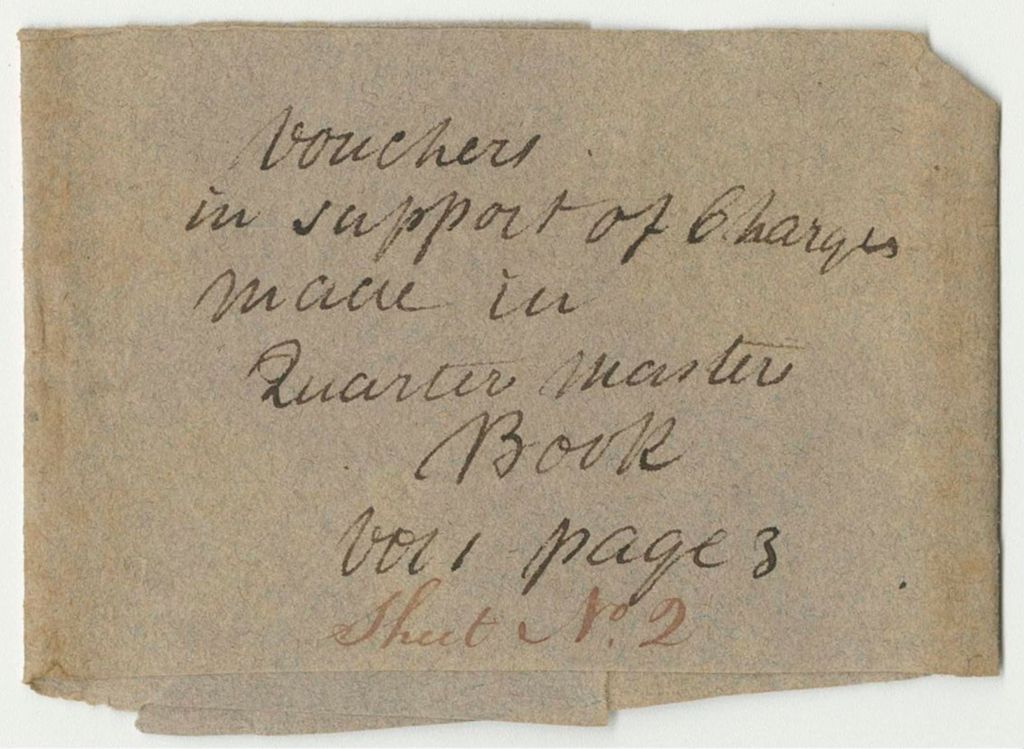 Vouchers
in support of Charges
made in
Quarter Masters
Book
Vol 1 page 3
Sheet No. 2